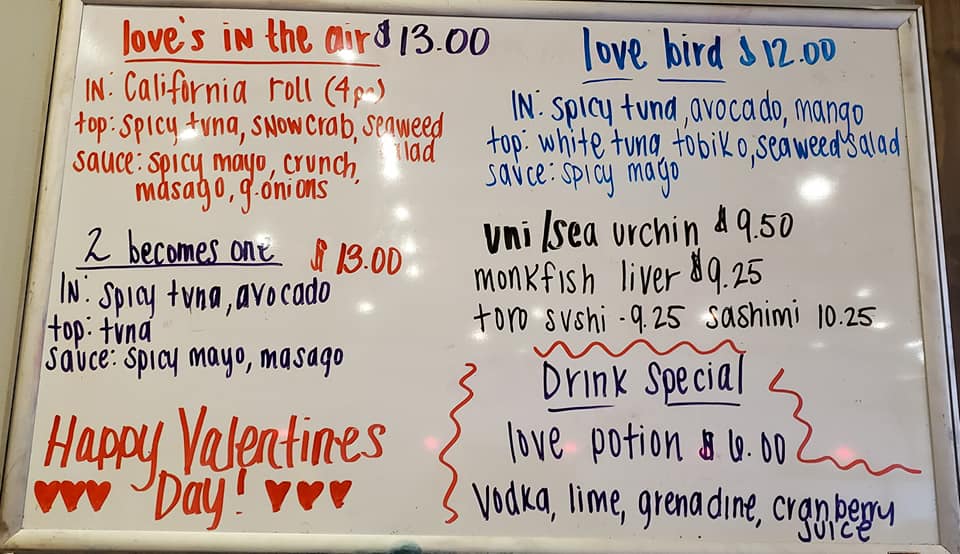 love's in the air $13.00
IN: California roll (4pc)
top: spicy tuna, snowcrab, seaweed
salad
sauce: spicy mayo, crunch,
masago, g.onions
2 becomes one $13.00
IN: spicy tuna, avocado
top: tuna
sauce: spicy mayo, masago
Happy Valentines
Day!
love bird $12.00
IN: spicy tuna, avocado, mango
top: white tuna, tobiko, seaweed salad
sauce: spicy mayo
uni/sea urchin $9.50
monkfish liver $9.25
toro sushi - 9.25 sashimi 10.25
Drink Special
love potion $6.00
Vodka, lime, grenadine, cranberry
juice